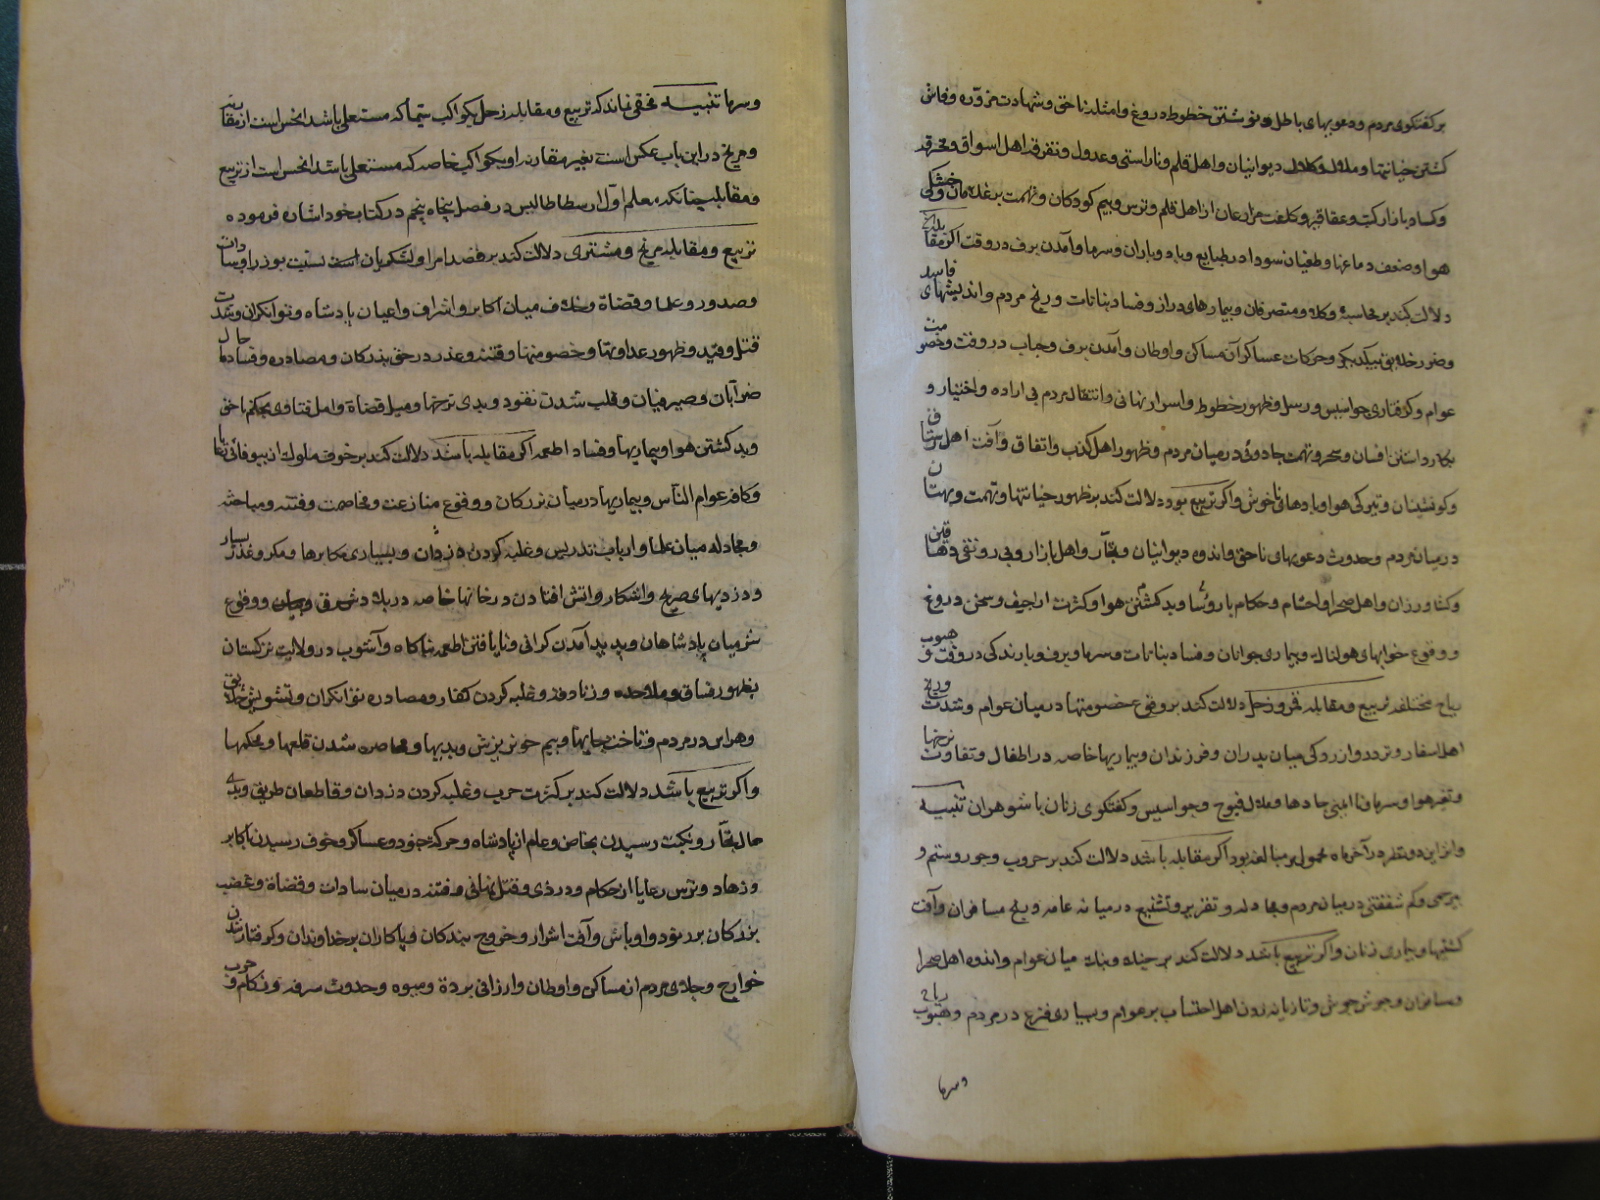 بر کفتکوی مردم و دعویهای باطل و نوشتن خطوط دروغ و امثله ناحق و شهادت مزوره و فاش
کشتن خیانتها و ملال وکلال دیوانیان و اهل قلم و ناراستی و عدول و تفرقه اهل اسواق و محترقه
و کساد بازار کتب و عقاقیر و کلفت مزارعان از اهل قلم و ترس و بیم کودکان و تهمت بر غلامان و خشکی
هوا و ضعف دماغها و طغیان سودا در طبایع و باد و باران و سرما و آمدن برف در وقت اکر مقابله
دلالت کند بر محاسبهٔ وکلا و متصرفان و بیماریهای دراز و فساد نباتات و رنج مردم و اندیشهای فاسد
و ضرر خلایق بیکدیکر و حرکات عساکر از مساکن و اوطان و آمدن برف و حباب در وقت و خصومت
عوام و کرفتاری جواسیس و رسل و ظهور خطوط و اسرار نهانی و انتقال مردم بی اراده و اختیار و
بکار داشتن افسان و سحر و تهمت جادوئی در میان مردم و ظهور اهل کذب و اتفاق و آفت اهل رستاق
و کوه نشینان و تیرکی هوا و بادهای ناخوش و اکر تربیع بود دلالت کند بر ظهور خیانتها و تهمت و بهتان
در میان مردم و حدوث دعویهای ناحق و اندوه دیوانیان و تجّار و اهل بازار و بی رونقی دهاقین
و کشاورزان و اهل صحرا و احشام و حکام با روسا و بد کشتن هوا و کثرت اراجیف و سخن دروغ
و وقوع خوابهای هولناک و بیماری جوانان و فساد نباتات و سرما و برف و بارندکی در وقت و هبوب
ریاح مختلفه تربیع و مقابله قمر و زحل دلالت کند بر وقوع خصومتها در میان عوام و شدت و رنج
اهل اسفار و تردد و ازردکی میان پدران و فرزندان و بیماریها خاصه در اطفال و تفاوت نرخها
و تغیر هوا و سرما و ملال فیوج و جواسیس و کفتکوی زنان با شوهران تنبیه
و اثر این دو نظر در آخر ماه محمول بر مبالغه بود اکر مقابله باشد دلالت کند بر حروب و جور و ستم و
بیرحمی و کم شفقتی در میان مردم و مجادله و تقریر و تشنیع در میانه عامه و رنج مسافران و آفت
کشتیها و بیماری زنان و اکر تربیع باشد دلالت کند بر جنک میان عوام و اندوه اهل صحرا
و مسافران و جوش جوش و تازیانه زدن اهل احتساب بر عوام و بسیاری فزع در مردم و هبوب ریاح
و سرما
و سرما تنبیه مخفی نماند که تربیع و مقابله زحل بکواکب سیما که مستعلی باشد انحس است از مقارنه
و مریخ در این باب عکس است یعنی مقارنه او بکواکب خاصه که مستعلی باشد انحس است از تربیع
و مقابله چنانکه معلم اول ارسطاطالیس در فصل پنجاه پنجم در کتاب خود اشاره فرموده
تربیع و مقابله مریخ و مشتری دلالت کند بر قصد امرا و لشکریان است نسبت بوزرا و سادات
و صدور و علما و قضاة و خلاف میان اکابر و اشراف و اعیان پادشاه و توانکران و شدت
قتل و قید و ظهور عداوتها و خصومتها و فتنه و عذر در حق بزرکان و مصادره و فساد حال
ضرابان و صیرفیان و قلب شدن نقود و بدی نرخها و میل قضاة و اهل فتاوی بحکم ناحق
و بد کشتن هوا و بیماریها و فساد اطعمه اکر مقابله باشد دلالت کند بر خوف ملوک از بیوفائی
و کافه عوام النّاس و بیماریها در میان بزرکان و وقوع منازعت و مخاصمت و فتنه و مباحثه
و مجادله میان علما و ارباب تدریس و غلبه کردن دزدان و بسیاری مکابرها و مکر و غدر بسیار
و دزدیهای صریح و اشکار و اتش افتادن در خانها خاصه در بلاد شرقی و وقوع
شر میان پادشاهان و پدید آمدن کرانی و نایافتن اطعمه ناکاه و آشوب در ولایت ترکستان
بظهور فساق و ملاحده و زنادقه و غلبه کردن کفار و مصادره توانکران و تشویش خلایق
و هراس در مردم و تاخت بجایها و بیم خونریزش و بدیها و محاصره شدن قلعها و محکمها
و اکر تربیع باشد دلالت کند بر کثرت حرب و غلبه کردن دزدان و قاطعان طریق و بدی
حال تجّار و نکبت رسیدن بخاص و عام از پادشاه و حرکت جنود و عساکر و خوف رسیدن باکابر
و زهاد و ترس رعایا از حکام و دزدی و قتل نهانی و فتنه در میان سادات و قضاة و غضب
بزرکان بر رنود و اوباش و آفت اشرار و خروج بندکان و پاکاران بر خداوندان و کرفتار شدن
خوارج و جلای مردم از مساکن و اوطان و ارزانی برده و میوه و حدوث سرفه و زکام و حرب